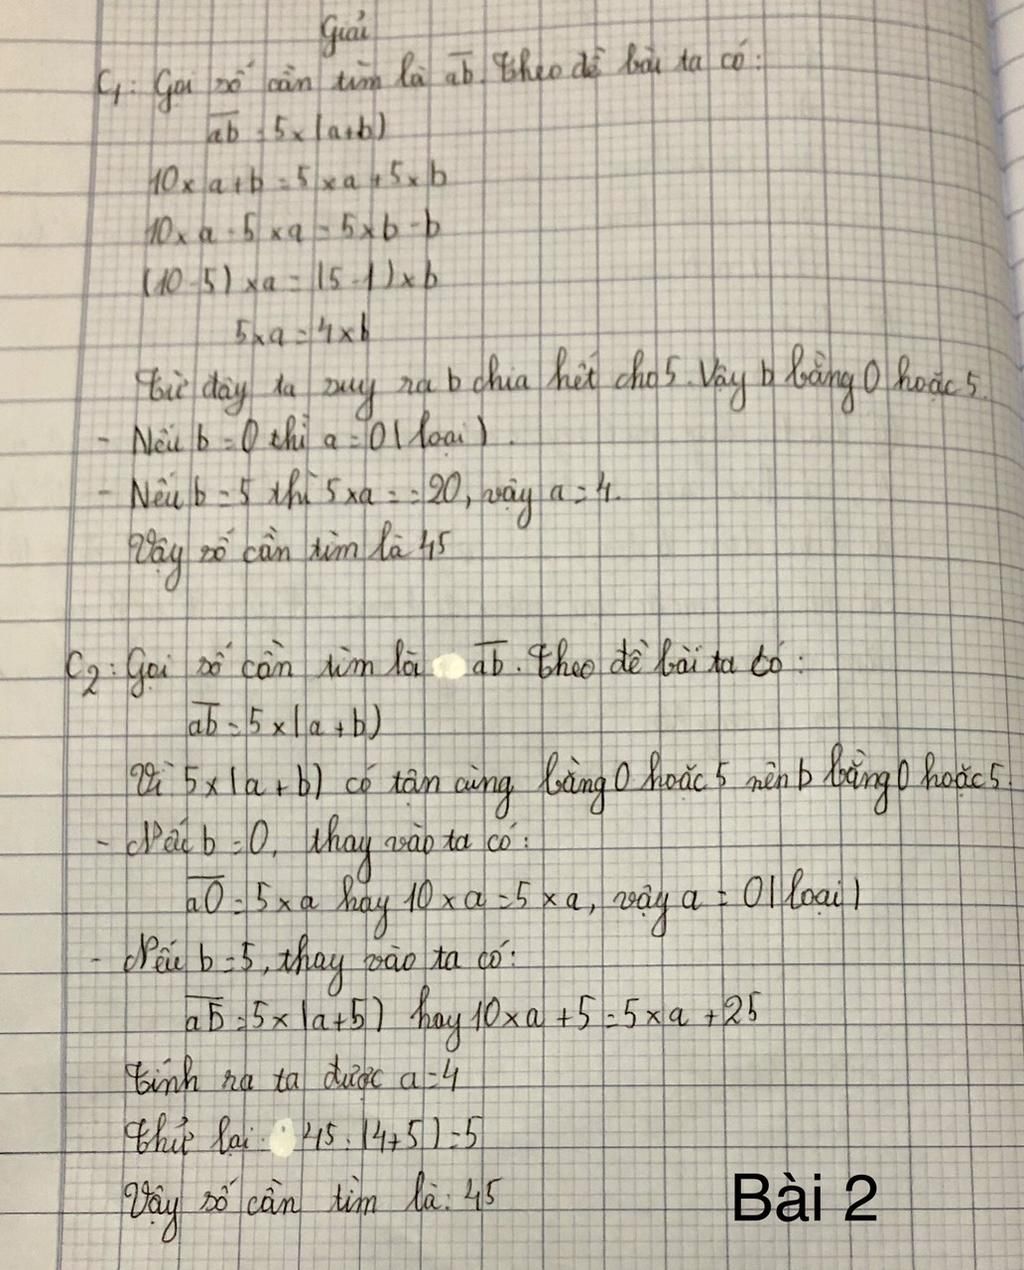 Giải
C₁: Gọi số cần tìm là ab. Theo đề bài ta có:
ab = 5 x (a+b)
10 x a + b = 5 x a + 5 x b
10 x a - 5 x a = 5 x b - b
(10 - 5) x a = (5 - 1) x b
5 x a = 4 x b
Từ đây ta suy ra b chia hết cho 5. Vậy b bằng 0 hoặc 5.
- Nếu b = 0 thì a = 0 (loại).
- Nếu b = 5 thì 5 x a = = 20, vậy a = 4.
Vậy số cần tìm là 45
C₂: Gọi số cần tìm là ab. Theo đề bài ta có:
ab = 5 x (a + b)
Vì 5 x (a + b) có tận cùng bằng 0 hoặc 5 nên b bằng 0 hoặc 5.
- Nếu b = 0, thay vào ta có:
a0 = 5 x a hay 10 x a = 5 x a, vậy a = 0 (loại)
- Nếu b = 5, thay vào ta có:
a5 = 5 x (a + 5) hay 10 x a + 5 = 5 x a + 25
Tính ra ta được a = 4
Thử lại: 45 : (4+5) = 5
Vậy số cần tìm là: 45
Bài 2